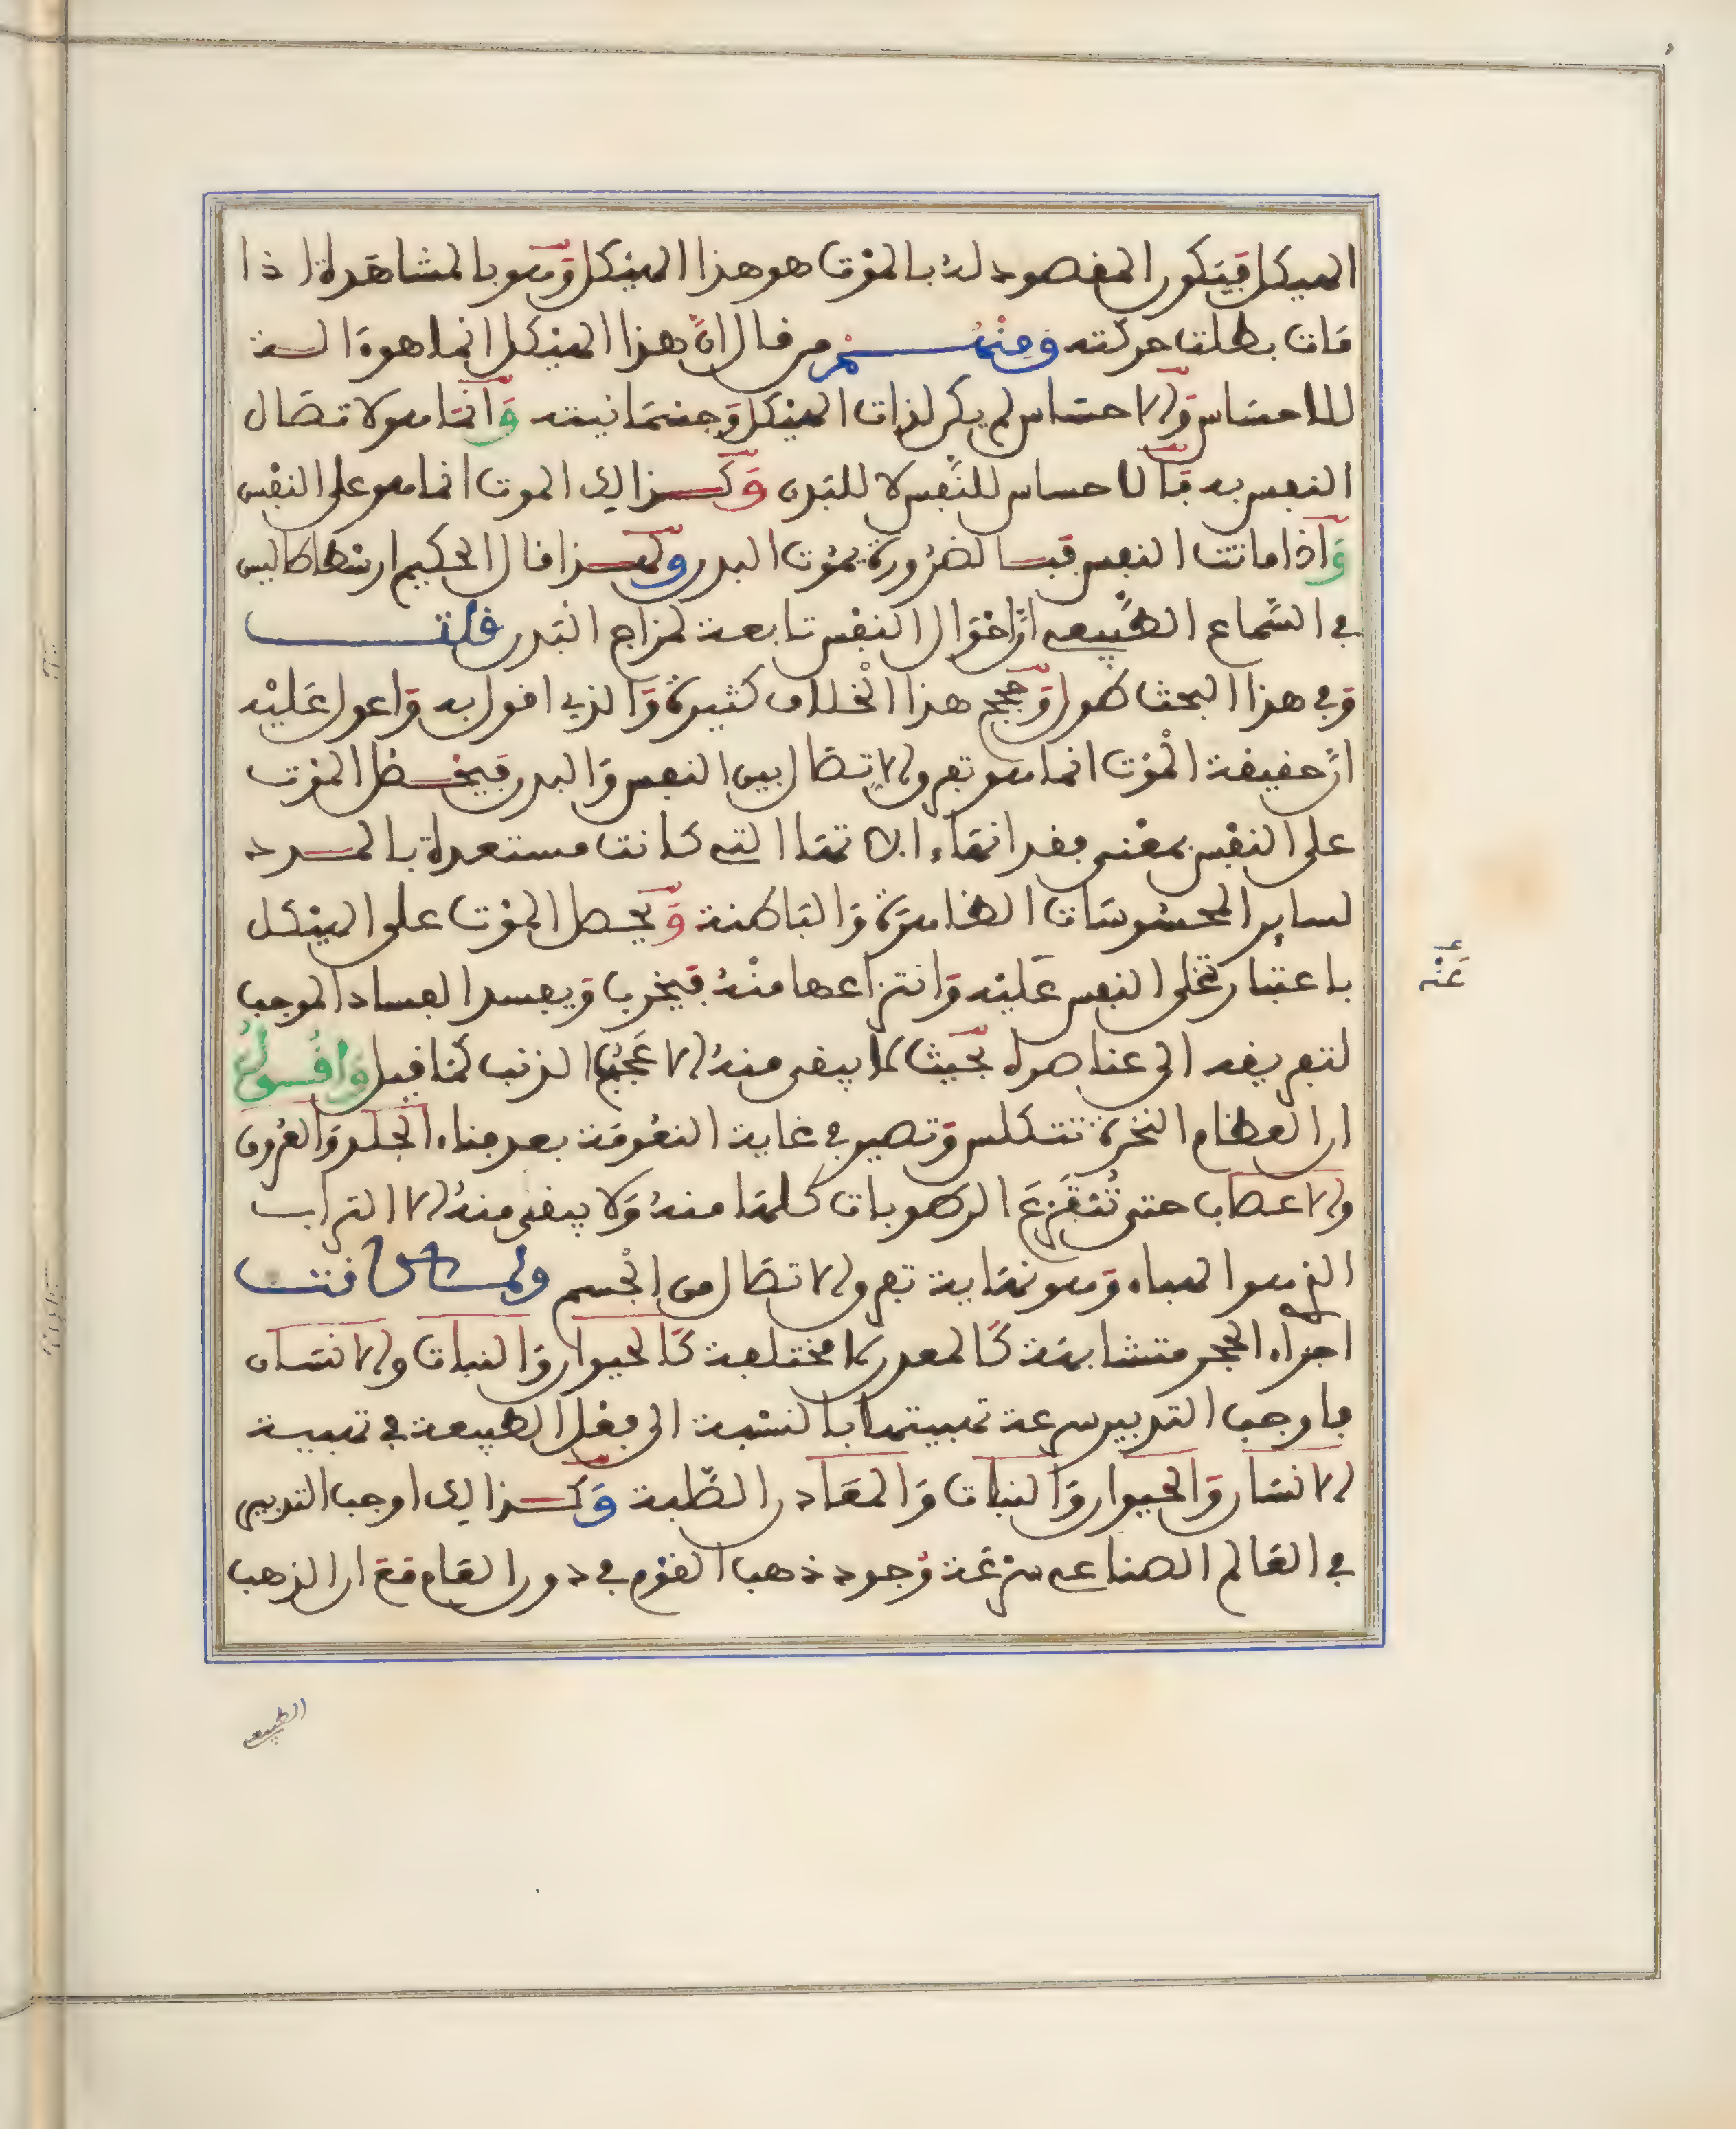 الهيكل فيكون المقصود له بالموت هو هذا الهيكل وهو بالمشاهدة اذا
مات بطلت حركته ومنهم من قال ان هذا الهيكل انما هو ءالة
للاحساس والاحساس لم يكن لذات الهيكل وجسمانيته وانما هو لاتصال
النفس به فالاحساس للنفس لا للبدن وكذالك الموت انما هو على النفس
واذا ماتت النفس فبالضرورة يموت البدن ولهذا قال الحكيم ارسطاطاليس
في السماع الطبيعي ان احوال النفس تابعة لمزاج البدن قلت
وفي هذا البحث طول وحجج هذا الخلاف كثيرة والذي اقول به واعول عليه
ان حقيقة الموت انما هو تفرق الاتصال بين النفس والبدن فيحصل الموت
على النفس بمعنى فقدانها ءالاتها التي كانت مستعدة بالمدد
لساير المحسوسات الظاهرة والباطنة ويحصل الموت على الهيكل
باعتبار تخلى النفس عليه وانتزاعها منه فيخرب ويفسد الفساد الموجب
عنه
لتفريقه الى عناصره بحيث لا يبقى منه الا عجب الذنب كما قيل واقول
ان العظام النخرة تتكلس وتصير في غاية النعومة بعد فناء الجلد والعروق
والاعصاب حتى تنفزع الرطوبات كلها منه ولا يبقى منه الا التراب
الذي هو الهباء وهو نهاية تفرق الاتصال من الجسم ولما كانت
اجزاء الحجر متشابهة كالمعدن لا مختلفة كالحيوان والنبات والانسان
فاوجب التدبير سرعة تهبيتها بالنسبة الى فعل الطبيعة في تهبية
الانسان والحيوان والنبات والمعادن الصلبة وكذالك اوجب التدبير
في العالم الصناعي سرعة وجود ذهب القوم في دور العام مع ان الذهب
الطبيعي